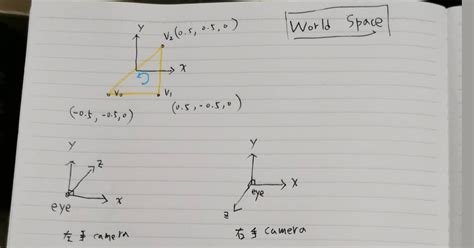 World Space
Y
V₂ (0.5, 0.5, 0)
X
V₀
V₁
(-0.5, -0.5, 0)
(0.5, -0.5, 0)
Y
Z
X
eye
左手 camera
Y
X
eye
Z
右手 camera